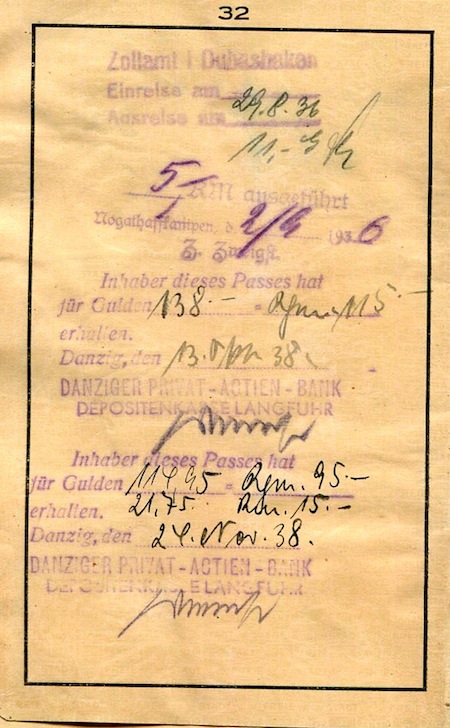 32
Zollamt
Einreise am 29.8.36
Ausreise am
11,-
5,- RM ausgeführt
Nogathaffkampen, d. 2/9 1936
Z. Zweigst.
Inhaber dieses Passes hat
für Gulden 138.- = Rgm. 115.-
erhalten.
Danzig, den 13. 38.
DANZIGER PRIVAT-ACTIEN-BANK
DEPOSITENKASSE LANGFUHR
Inhaber dieses Passes hat
für Gulden 114,95 = Rgm. 95.-
erhalten. 21,75 Rm. 15.-
Danzig, den 24. Nov. 38.
DANZIGER PRIVAT-ACTIEN-BANK
DEPOSITENKASSE LANGFUHR